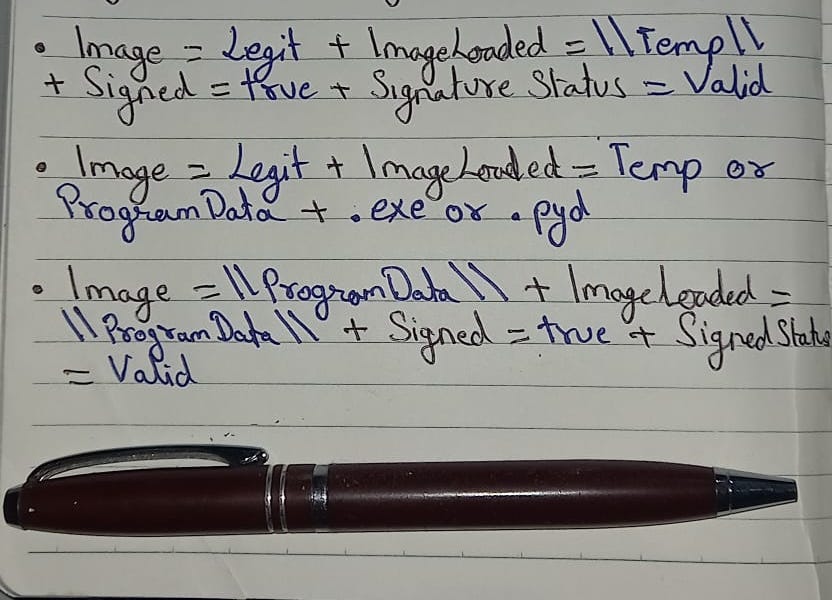 • Image = Legit + ImageLoaded = \\Temp\\
+ Signed = true + Signature Status = Valid
• Image = Legit + ImageLoaded = Temp or
ProgramData + .exe or .pyd
• Image = \\ProgramData\\ + ImageLoaded =
\\ProgramData\\ + Signed = true + SignedStatus
= Valid